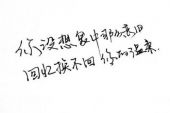 你没想象中那么恋旧
回忆换不回你的温柔